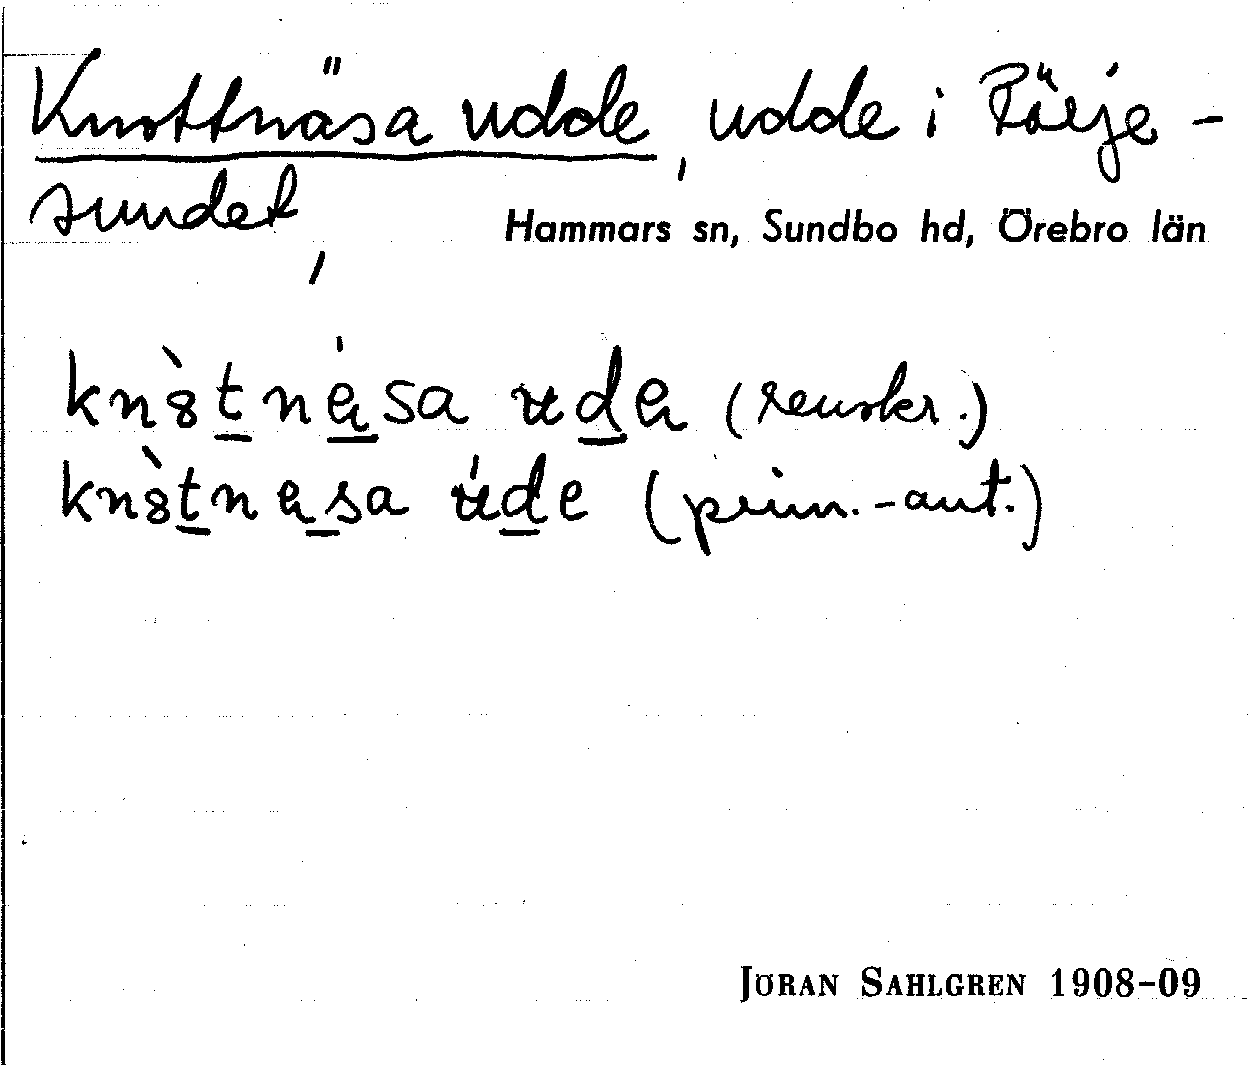 Knottnäsa udde, udde i Rörje-
sundet,
Hammars sn, Sundbo hd, Örebro län
kn8̀tnésa uda (renskr.)
kn8̀tnesa úde (prim.-ant.)
JÖRAN SAHLGREN 1908-09